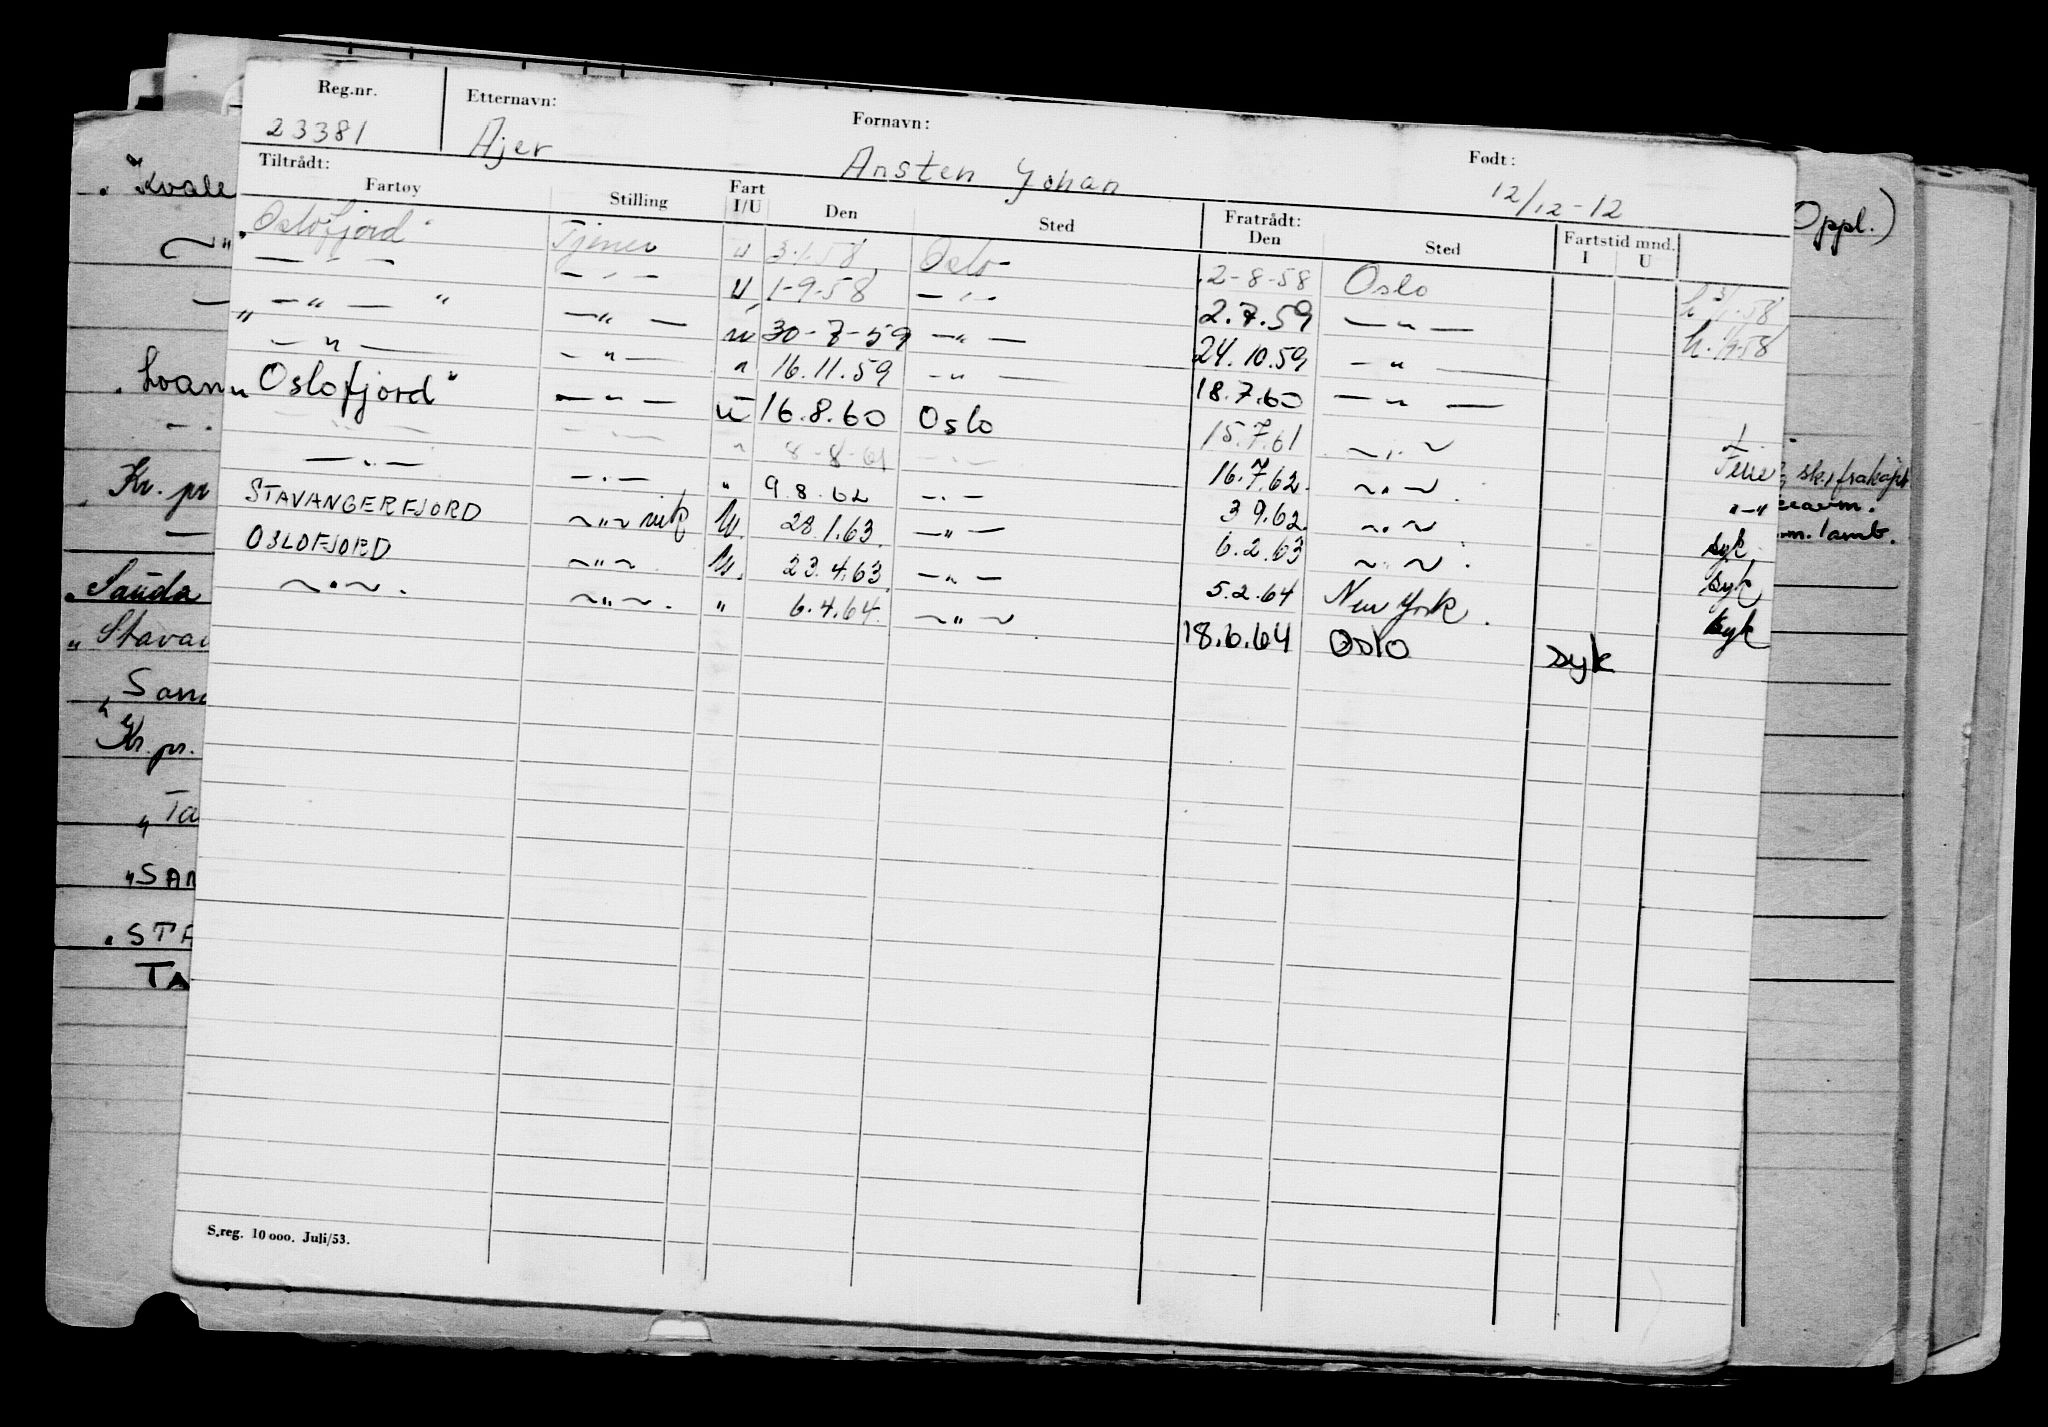 Reg.nr. Etternavn: Fornavn: Født:
23381 Ajer Ansten Johan 12/12-12
Tiltrådt: Fratrådt:
Fartøy Stilling Fart I/U Den Sted Den Sted Fartstid mnd. I U
"Oslofjord" Tjener u 3-1-58 Oslo 2-8-58 Oslo h 3/1-58
— " — — " — U 1-9-58 — " — 2.7.59 — " — h. 1/9-58
" — " — " — " — u 30-7-59 — " — 24.10.59 — " —
— " — — " — " 16.11.59 — " — 18.7.60 — " —
"Oslofjord" — " — u 16.8.60 Oslo 15.7.61 — " —
— " — — " — " 8-8-61 — " — 16.7.62. — " — Ferie
— " — — " — " 9.8.62 — " — 3 9.62. — " — — " —
STAVANGERFJORD — " — vik U. 28.1.63. — " — 6.2.63 — " — syk
OSLOFJORD — " — U. 23.4.63. — " — 5.2.64 New York. syk
— " — . — " — . " 6.4.64. — " — 18.6.64 Oslo syk syk
S.reg. 10 000. Juli/53.
"Kvale
Kr. pr
"Sauda
"Stava
"San
Kr. pr.
"Ta
"SAN
"STA
TA
Oppl.)